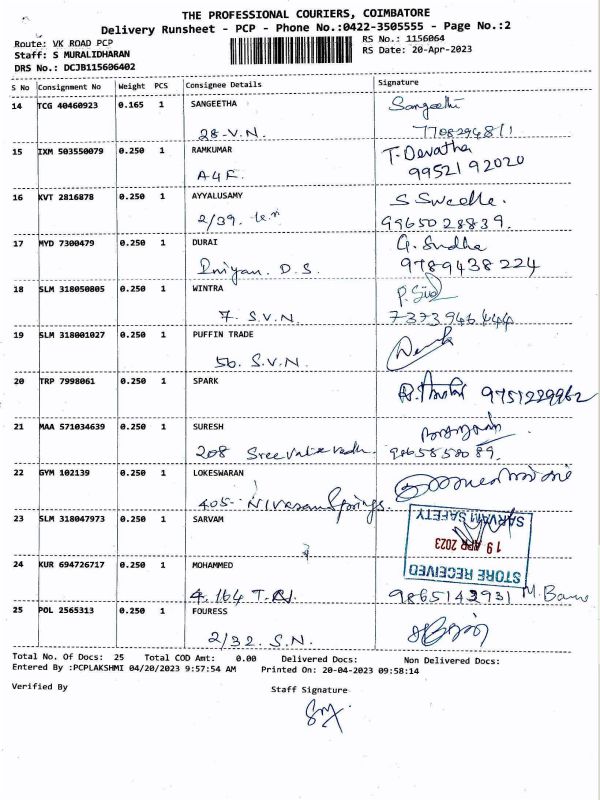 THE PROFESSIONAL COURIERS, COIMBATORE
Delivery Runsheet - PCP - Phone No.:0422-3505555 - Page No.:2
Route: VK ROAD PCP RS No.: 1156064
Staff: S MURALIDHARAN RS Date: 20-Apr-2023
DRS No.: DCJB115606402
S No Consignment No Weight PCS Consignee Details Signature
14 TCG 40460923 0.165 1 SANGEETHA Sangeetha
28-V.N. 7708294811
15 IXM 503550079 0.250 1 RAMKUMAR T. Devatha
A4F. 9952192020
16 KVT 2816878 0.250 1 AYYALUSAMY S Swetha.
2/39. 9965028839.
17 MYD 7300479 0.250 1 DURAI G. Sudha
Iniyan. D.S. 9789438224
18 SLM 318050805 0.250 1 WINTRA
7. S.V.N. 7373946444
19 SLM 318001027 0.250 1 PUFFIN TRADE
50. S.V.N.
20 TRP 7998061 0.250 1 SPARK 9751229962
21 MAA 571034639 0.250 1 SURESH
208 9865858089.
22 GYM 102139 0.250 1 LOKESWARAN
405- Nivasam Springs.
23 SLM 318047973 0.250 1 SARVAM
SARVAM SAFETY
19 APR 2023
STORE RECEIVED
24 KUR 694726717 0.250 1 MOHAMMED
4.164 T.N. 9865143931 M. Banu
25 POL 2565313 0.250 1 FOURESS
2/32. S.N.
Total No. Of Docs: 25 Total COD Amt: 0.00 Delivered Docs: Non Delivered Docs:
Entered By :PCPLAKSHMI 04/20/2023 9:57:54 AM Printed On: 20-04-2023 09:58:14
Verified By Staff Signature